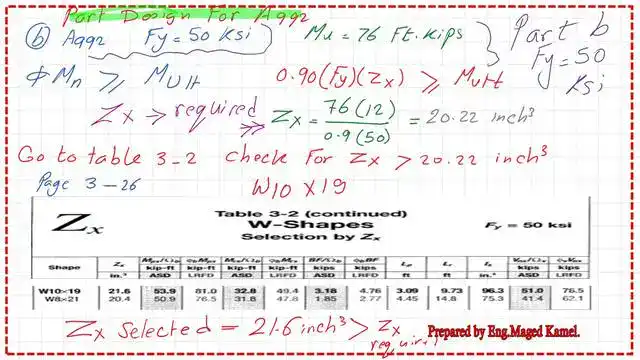 Part Design For A992
b A992 Fy = 50 Ksi Mu = 76 Ft.Kips Part b
Fy = 50
Ksi
φMn ≥ MUlt 0.90(Fy)(Zx) ≥ MUlt
Zx → required Zx = 76(12) / 0.9(50) = 20.22 inch³
Go to table 3-2 check For Zx > 20.22 inch³
Page 3-26 W10 X 19
Zx Table 3-2 (continued)
W-Shapes Fy = 50 ksi
Selection by Zx
Shape Zx Mpx/Ωb φbMpx Mrx/Ωb φbMrx BF/Ωb φbBF Lp Lr Ix Vnx/Ωv φvVnx
in.³ kip-ft kip-ft kip-ft kip-ft kips kips ft ft in.⁴ kips kips
ASD LRFD ASD LRFD ASD LRFD ASD LRFD
W10×19 21.6 53.9 81.0 32.8 49.4 3.18 4.76 3.09 9.73 96.3 51.0 76.5
W8×21 20.4 50.9 76.5 31.8 47.8 1.85 2.77 4.45 14.8 75.3 41.4 62.1
Zx Selected = 21.6 inch³ > Zx
required
Prepared by Eng.Maged Kamel.